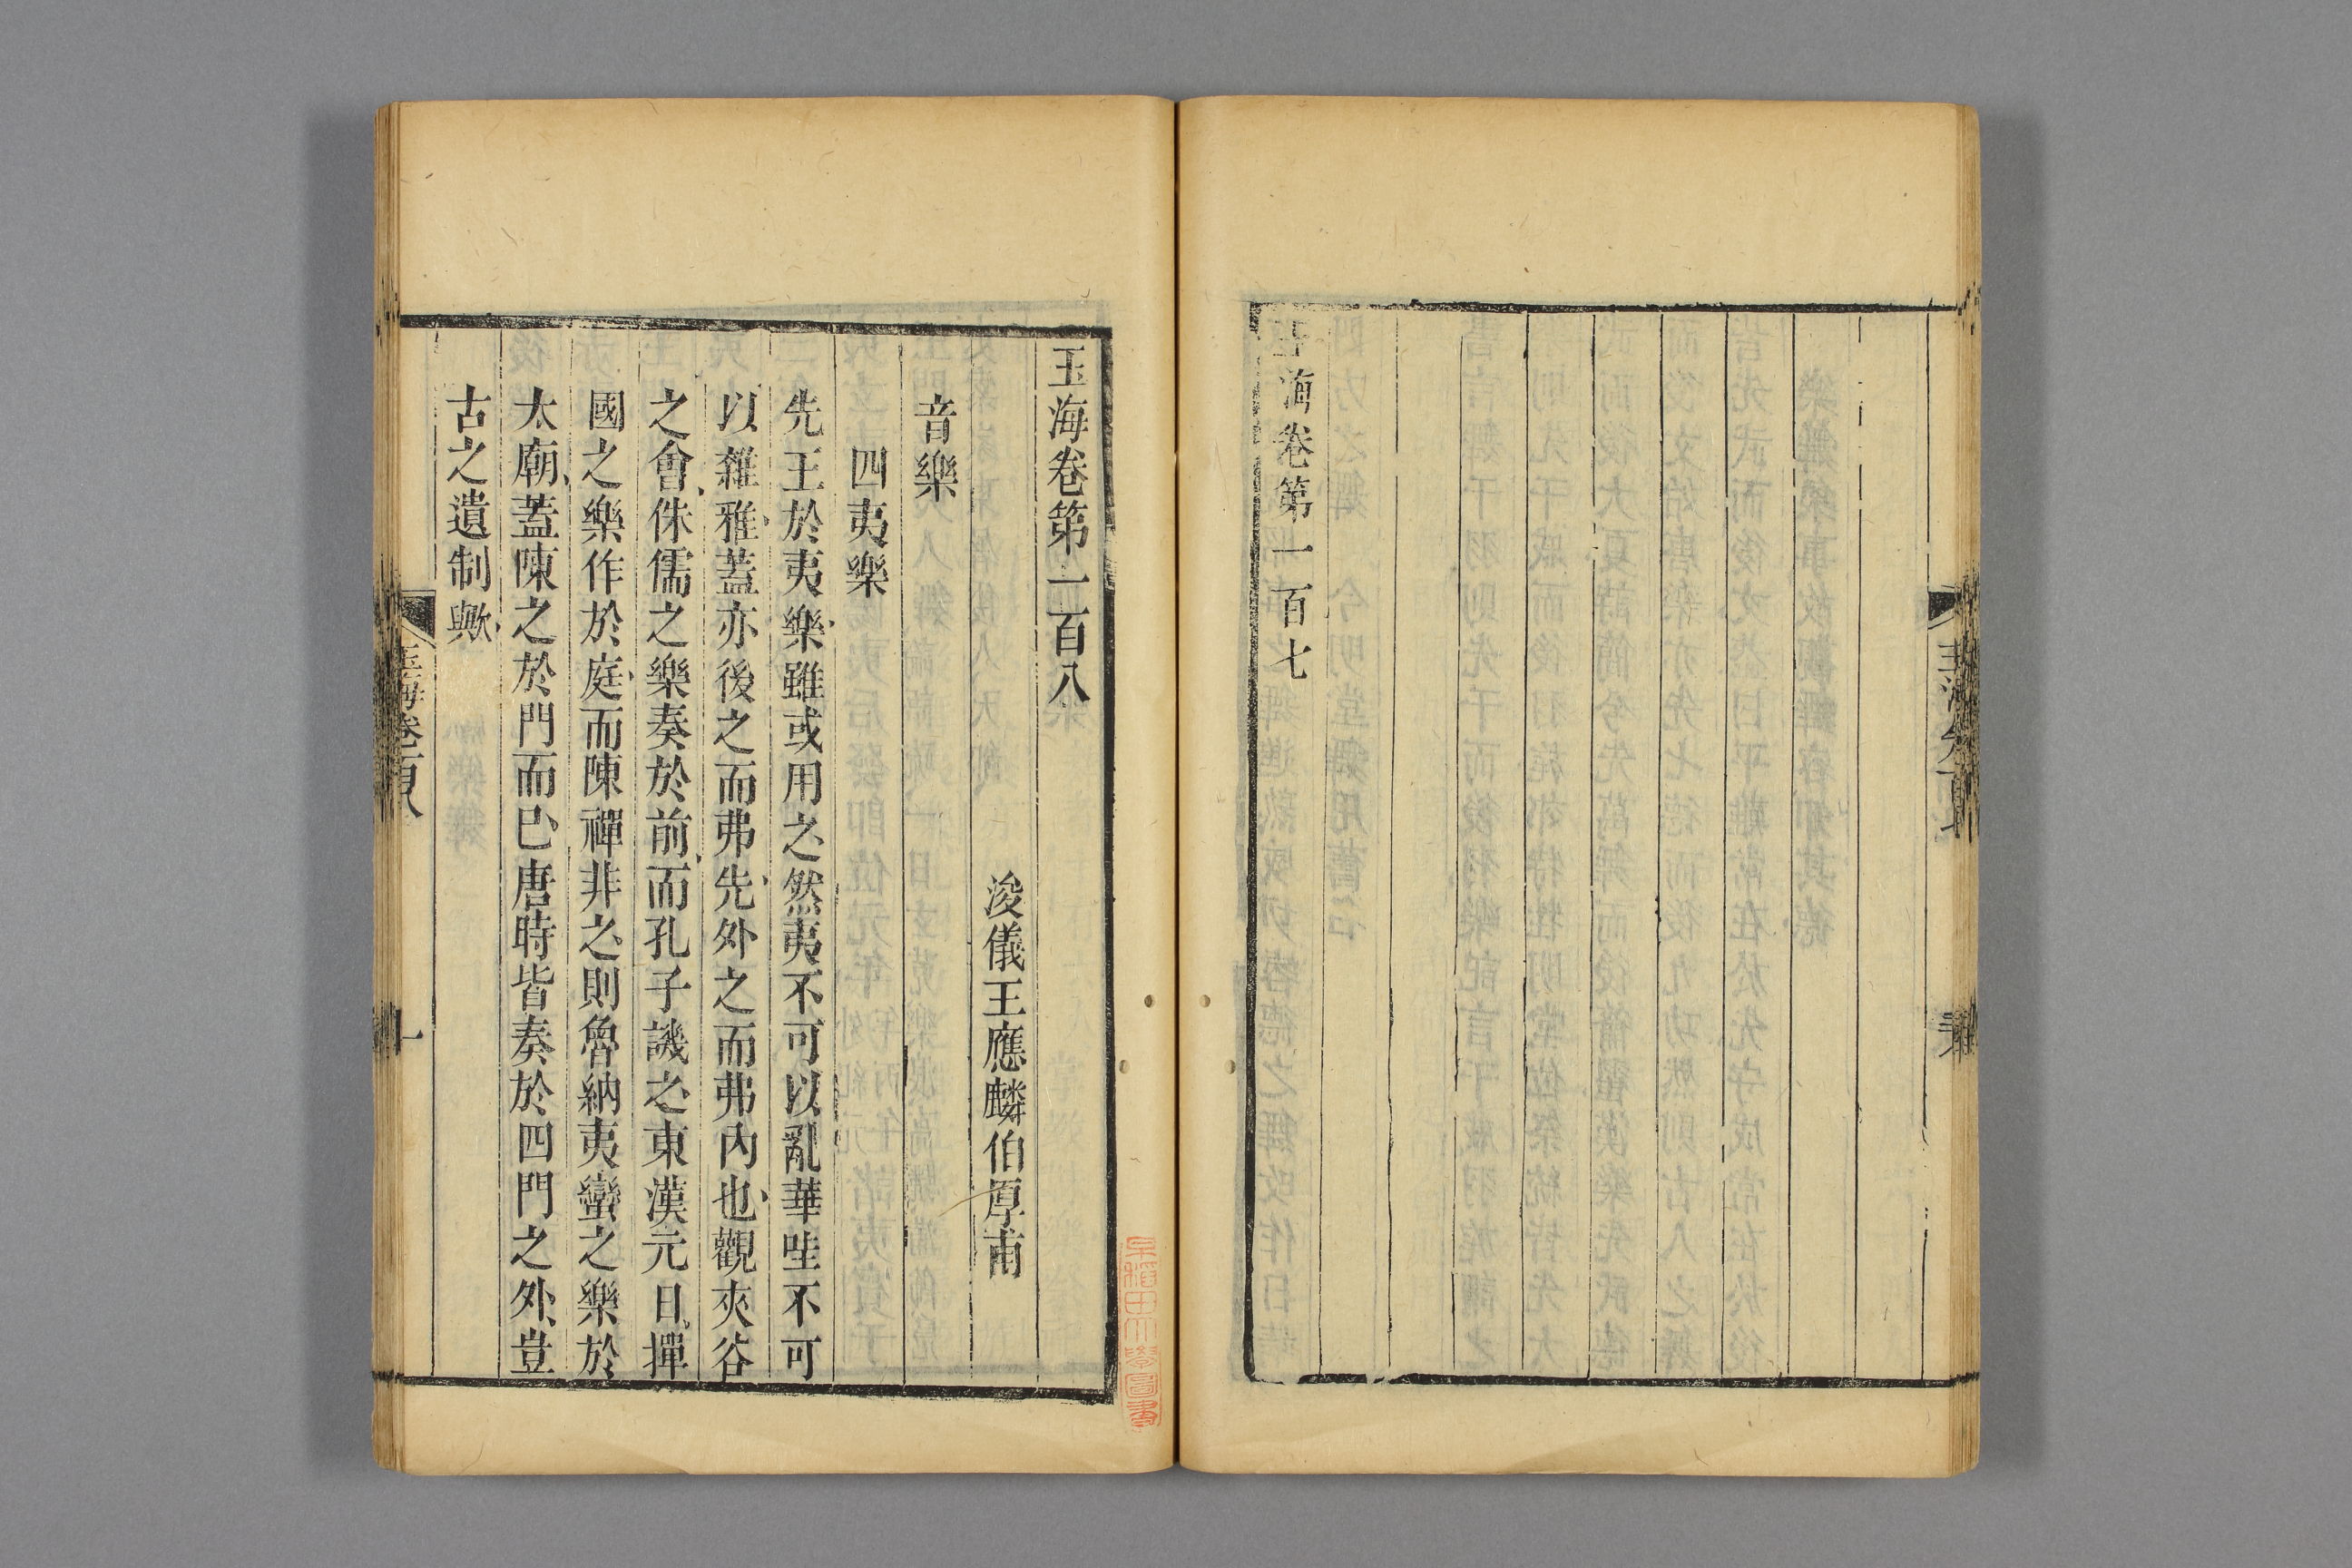 玉海卷第一百七
玉海卷第一百八
浚儀王應麟伯厚甫
音樂
四夷樂
先王於夷樂雖或用之然夷不可以亂華哇不可
以雜雅蓋亦後之而弗先外之而弗內也觀夾谷
之會侏儒之樂奏於前而孔子譏之東漢元日撣
國之樂作於庭而陳禪非之則魯納夷蠻之樂於
太廟蓋陳之於門而已唐時皆奏於四門之外豈
古之遺制歟
玉海卷百八
一
早稻田大學圖書